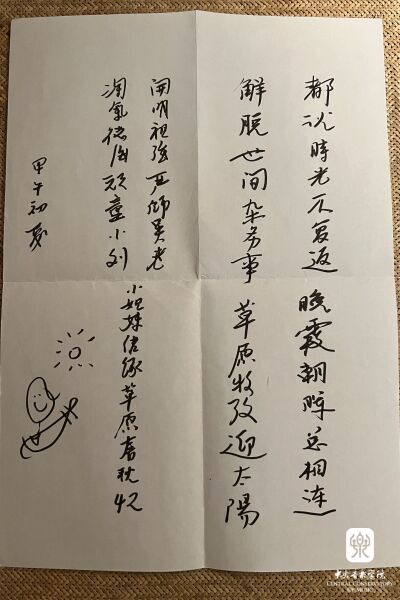 都说時光不复返 晚霞朝暉总相连
解脱世间杂务事 草原牧放迎太陽
開明祖强严师吴老
淘氣德国顽童小刘
小姐妹佳缘草原春秋42
甲午初夏
中央音乐学院
CENTRAL CONSERVATORY
OF MUSIC